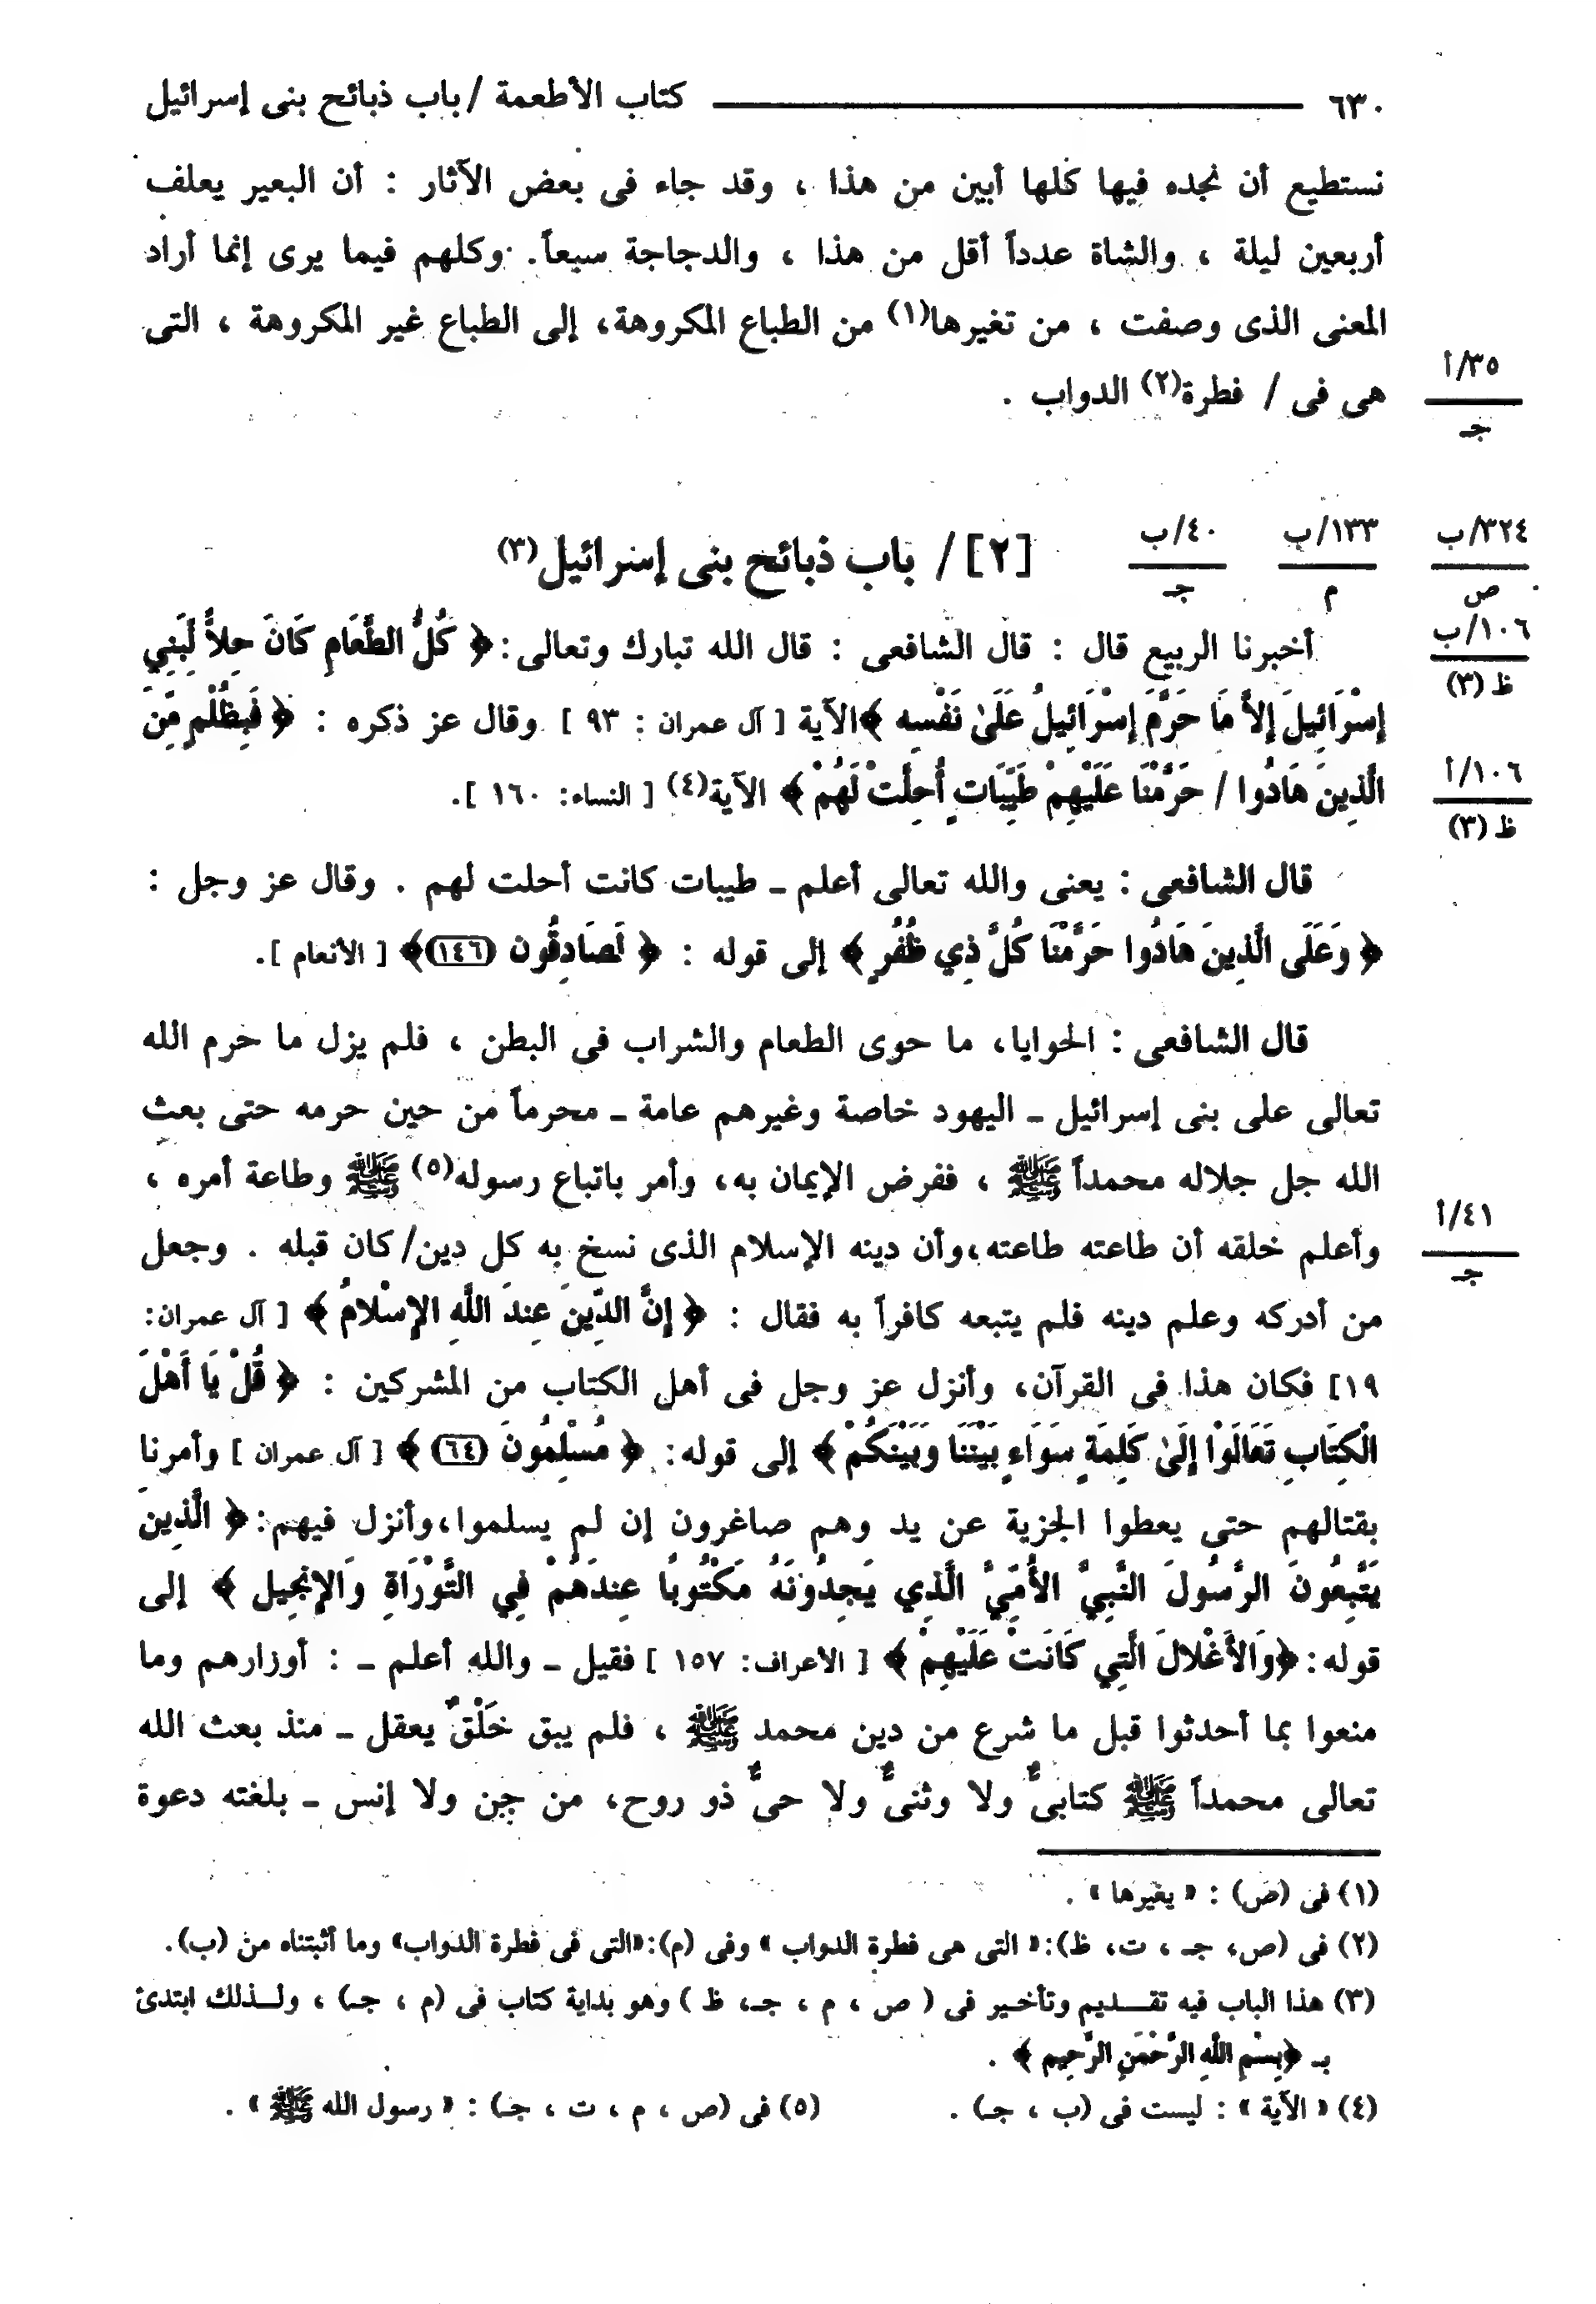 ٦٣٠ كتاب الأطعمة / باب ذبائح بنى إسرائيل
نستطيع أن نجده فيها كلها أبين من هذا ، وقد جاء فى بعض الآثار : أن البعير يعلف
أربعين ليلة ، والشاة عدداً أقل من هذا ، والدجاجة سبعاً. وكلهم فيما يرى إنما أراد
المعنى الذى وصفت ، من تغيرها(١) من الطباع المكروهة، إلى الطباع غير المكروهة ، التى
٣٥/أ
هى فى / فطرة(٢) الدواب .
جـ
٣٢٤/ب ١٣٣/ب ٤٠/ب
[٢] / باب ذبائح بنى إسرائيل(٣)
ص م جـ
١٠٦/ب
أخبرنا الربيع قال : قال الشافعى : قال الله تبارك وتعالى: ﴿ كُلُّ الطَّعَامِ كَانَ حِلاًّ لِّبَنِي
ظ (٣)
إِسْرَائِيلَ إِلاَّ مَا حَرَّمَ إِسْرَائِيلُ عَلَىٰ نَفْسِهِ ﴾الآية [ آل عمران : ٩٣ ] وقال عز ذكره : ﴿ فَبِظُلْمٍ مِّنَ
١٠٦/أ
الَّذِينَ هَادُوا / حَرَّمْنَا عَلَيْهِمْ طَيِّبَاتٍ أُحِلَّتْ لَهُمْ ﴾ الآية(٤) [ النساء: ١٦٠ ].
ظ (٣)
قال الشافعى : يعنى والله تعالى أعلم ـ طيبات كانت أحلت لهم . وقال عز وجل :
﴿ وَعَلَى الَّذِينَ هَادُوا حَرَّمْنَا كُلَّ ذِي ظُفُرٍ ﴾ إلى قوله : ﴿ لَصَادِقُون (١٤٦)﴾ [ الأنعام ].
قال الشافعى : الحوايا، ما حوى الطعام والشراب فى البطن ، فلم يزل ما حرم الله
تعالى على بنى إسرائيل ـ اليهود خاصة وغيرهم عامة ـ محرماً من حين حرمه حتى بعث
الله جل جلاله محمداً ﷺ ، ففرض الإيمان به، وأمر باتباع رسوله(٥) ﷺ وطاعة أمره ،
٤١/أ
وأعلم خلقه أن طاعته طاعته،وأن دينه الإسلام الذى نسخ به كل دين/كان قبله . وجعل
جـ
من أدركه وعلم دينه فلم يتبعه كافراً به فقال : ﴿ إِنَّ الدِّينَ عِندَ اللَّهِ الإِسْلامُ ﴾ [ آل عمران:
١٩] فكان هذا فى القرآن، وأنزل عز وجل فى أهل الكتاب من المشركين : ﴿ قُلْ يَا أَهْلَ
الْكِتَابِ تَعَالَوْا إِلَىٰ كَلِمَةٍ سَوَاءٍ بَيْنَنَا وَبَيْنَكُمْ ﴾ إلى قوله: ﴿ مُسْلِمُونَ (٦٤) ﴾ [ آل عمران ] وأمرنا
بقتالهم حتى يعطوا الجزية عن يد وهم صاغرون إن لم يسلموا،وأنزل فيهم:﴿ الَّذِينَ
يَتَّبِعُونَ الرَّسُولَ النَّبِيَّ الأُمِّيَّ الَّذِي يَجِدُونَهُ مَكْتُوبًا عِندَهُمْ فِي التَّوْرَاةِ وَالإِنْجِيلِ ﴾ إلى
قوله:﴿وَالأَغْلالَ الَّتِي كَانَتْ عَلَيْهِمْ ﴾ [ الأعراف: ١٥٧ ] فقيل ـ والله أعلم ـ : أوزارهم وما
منعوا بما أحدثوا قبل ما شرع من دين محمد ﷺ ، فلم يبق خَلْقٌ يعقل ـ منذ بعث الله
تعالى محمداً ﷺ كتابىٌّ ولا وثنىٌّ ولا حىٌّ ذو روح، من جن ولا إنس ـ بلغته دعوة
(١) فى (ص) : « يغيرها » .
(٢) فى (ص، جـ ، ت، ظ):« التى هى فطرة الدواب » وفى (م):«التى فى فطرة الدواب» وما أثبتناه من (ب).
(٣) هذا الباب فيه تقـــديم وتأخـير فى ( ص ، م ، جـ، ظ ) وهو بداية كتاب فى (م ، جـ) ، ولـذلك ابتدئ
بـ ﴿بِسْمِ اللَّهِ الرَّحْمَنِ الرَّحِيمِ ﴾ .
(٤) « الآية » : ليست فى (ب ، جـ) . (٥) فى (ص ، م ، ت ، جـ) : « رسول الله ﷺ » .